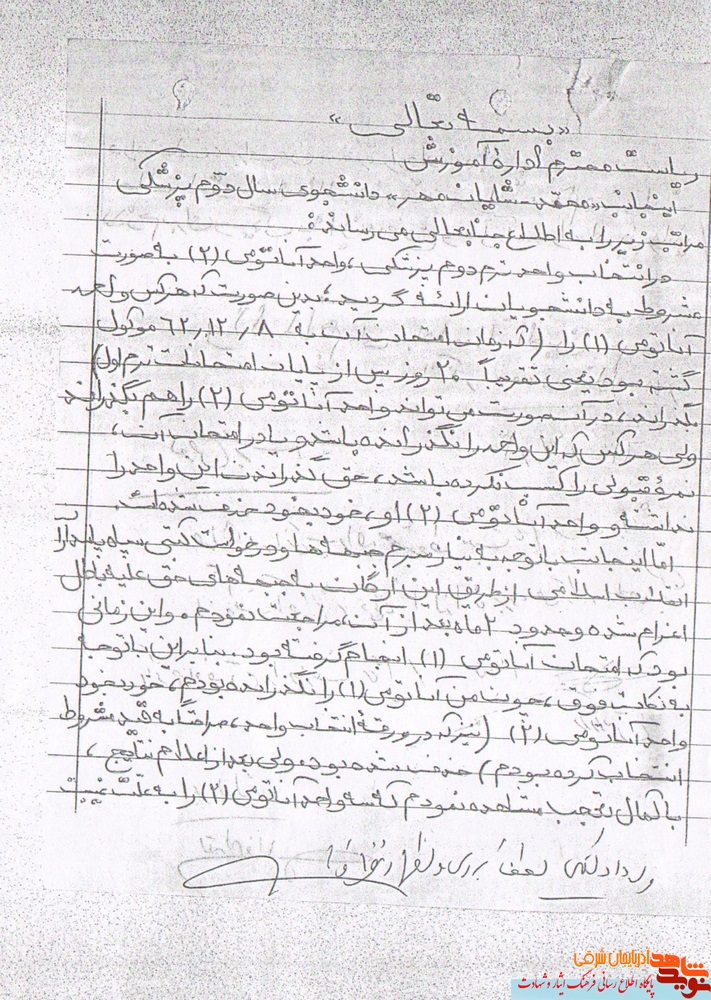 «بسمه تعالی»
ریاست محترم ادارهٔ آموزش
اینجانب «محمد شایان مهر» دانشجوی سال دوم پزشکی
مراتب زیر را به اطلاع جنابعالی می رساند:
در انتخاب واحد ترم دوم پزشکی، واحد آناتومی (۲) به صورت
مشروط به دانشجویان ارائه گردید؛ بدین صورت که هر کس واحد
آناتومی (۱) را (که زمان امتحان آن به ۸ / ۱۲ / ۶۲ موکول
گشته بود یعنی تقریباً ۲۰ روز پس از پایان امتحانات ترم اول)
بگذراند، در آن صورت می تواند واحد آناتومی (۲) را هم بگذراند
ولی هر کس که این واحد را نگذرانده باشد و یا در امتحان آن،
نمرهٔ قبولی را کسب نکرده باشد، حق گذراندن این واحد را
نداشته و واحد آناتومی (۲) او، خودبخود حذف شده است.
امّا اینجانب با توجه به نیاز مبرم جبهه ها و درخواست کتبی سپاه پاسداران
انقلاب اسلامی از طریق این ارگان به جبهه های حق علیه باطل
اعزام شده و حدود ۲ ماه بعد از آن، مراجعت نمودم. و این زمانی
بود که امتحان آناتومی (۱) انجام گرفته بود. بنابراین با توجه
به نکات فوق، چون من آناتومی (۱) را نگذرانده بودم، خودبخود
واحد آناتومی (۲) (نیز که در ورقهٔ انتخاب واحد، صراحتاً به قید مشروط
انتخاب کرده بودم) حذف شده بود. ولی بعد از اعلام نتایج،
با کمال تعجب مشاهده نمودم که سه واحد آناتومی (۲) را به علّت غیبت
لطفاً بررسی و
نوید شاهد آذربایجان شرقی
پایگاه اطلاع رسانی فرهنگ ایثار و شهادت